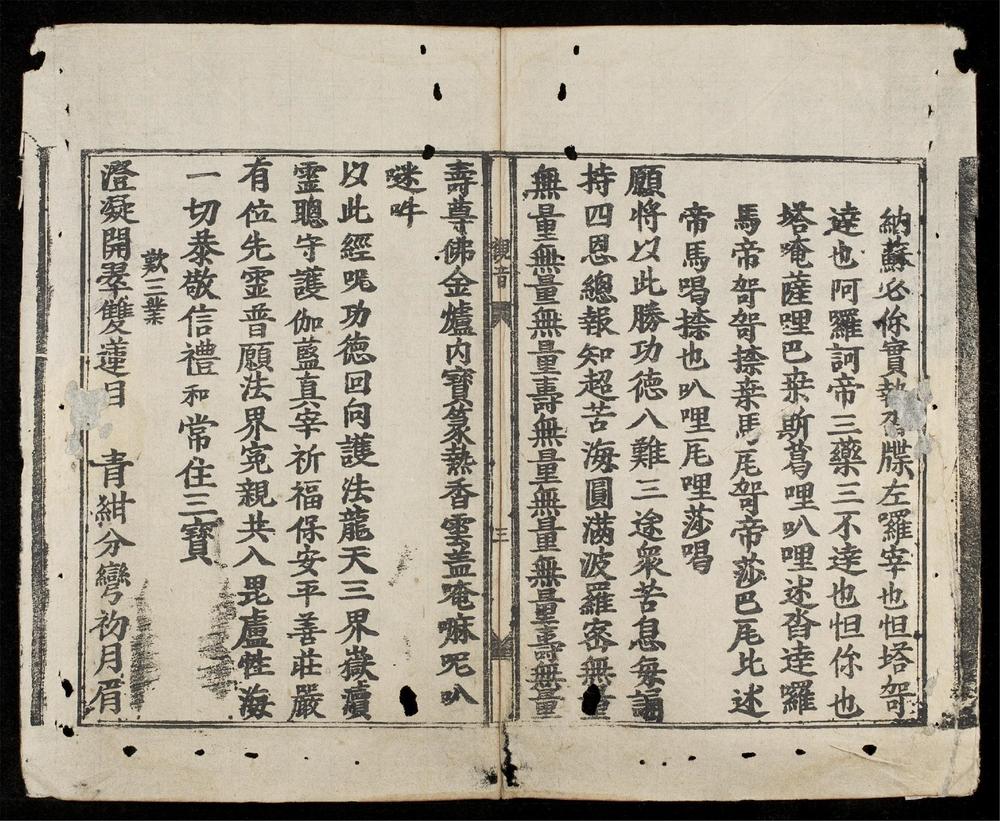 納蘇必你實執吞牒左羅宰也怛塔哿
達也阿羅訶帝三藥三不達也怛你也
塔唵薩哩巴桒斯葛哩叭哩述沓達囉
馬帝哿哿捺桒馬厇哿帝莎巴厇比述
帝馬喝捺也叭哩厇哩莎喝
願將以此勝功德八難三途衆苦息每誦
持四恩總報知超苦海圓滿波羅密無量
無量無量無量壽無量無量無量壽無量
觀音
三
壽尊佛金爐內寶篆熱香雲盖唵嘛呢叭
㘑吽
以此經呪功德回向護法龍天三界嶽瀆
靈聰守護伽藍真宰祈福保安平善莊嚴
有位先靈普願法界寃親共入毘盧性海
一切恭敬信禮和常住三寶
歎三業
澄凝開翠雙蓮目 青紺分彎初月眉